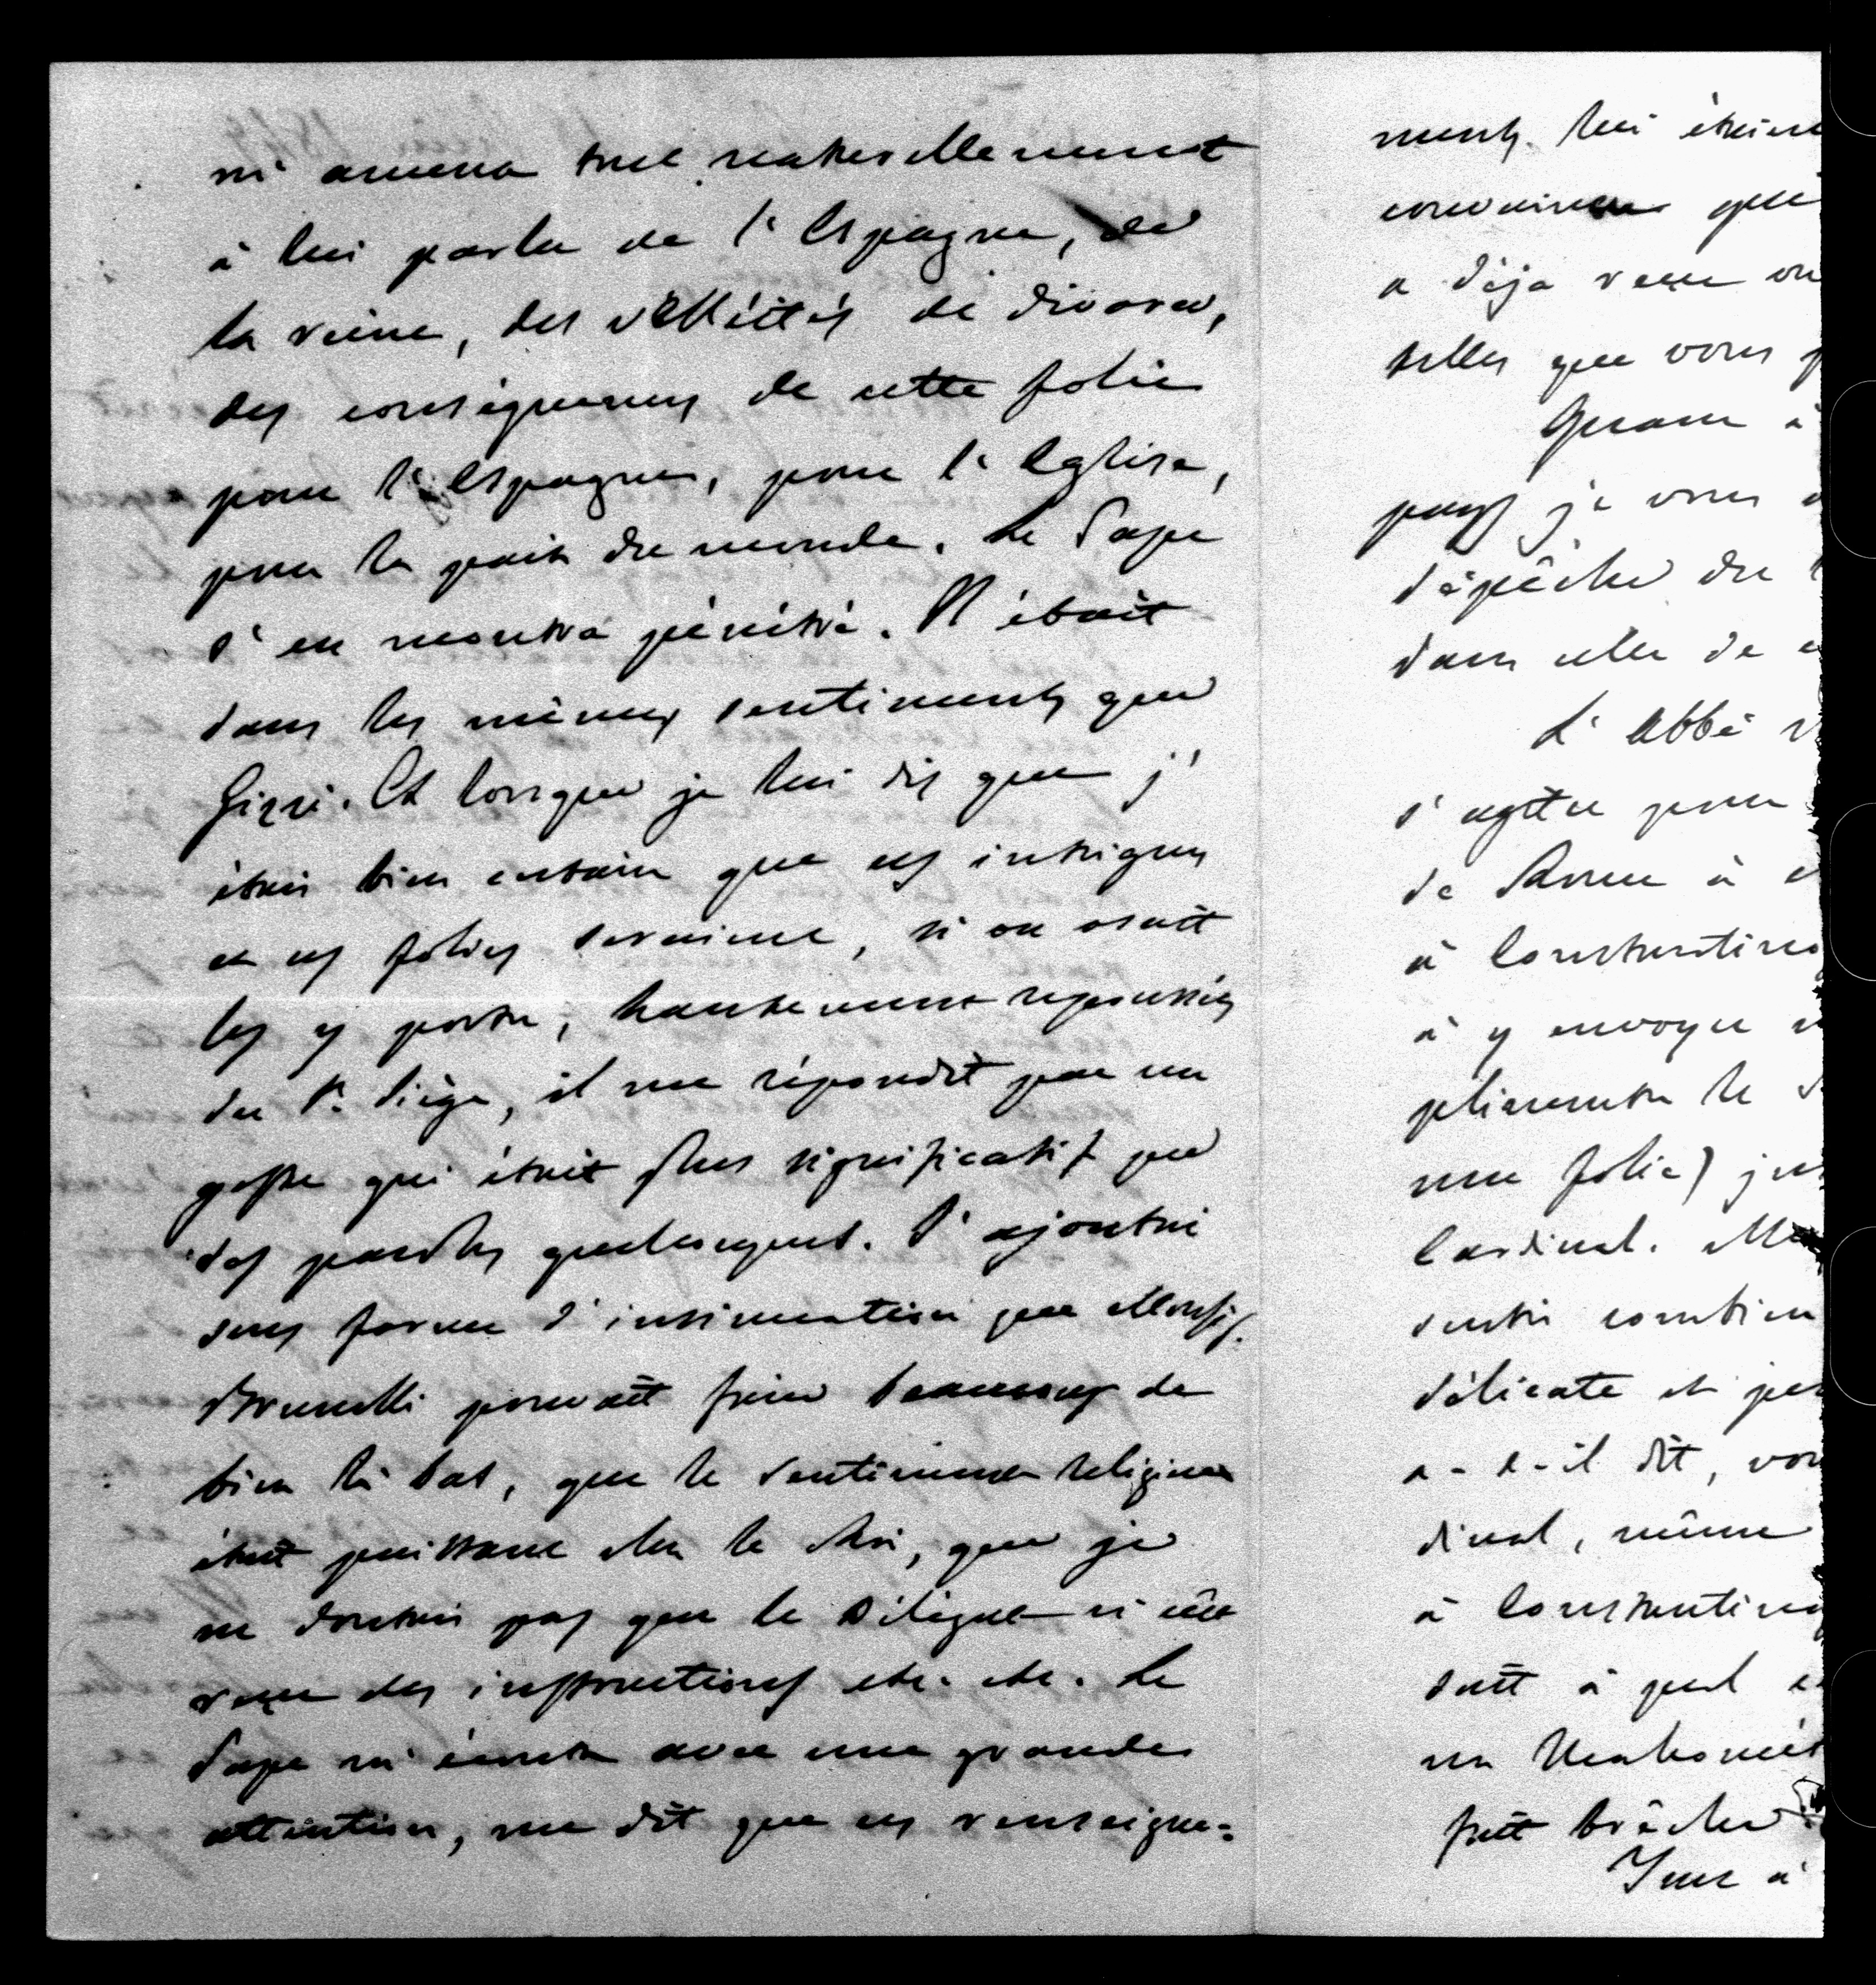 m'amena tout naturellement
à lui parler de l'Espagne, de
la reine, des velléités de divorce,
des conséquences de cette folie
pour l'Espagne, pour l'Eglise,
pour la paix du monde. Le Pape
s'en montra pénétré. Il était
dans les mêmes sentiments que
Gizzi. Et lorsque je lui dis que j'
étais bien certain que ces intrigues
et ces folies seraient, si on osait
les y porter, hautement repoussées
du St. Siège, il me répondit par un
geste qui était plus significatif que
des paroles quelconques. J'ajoutai
sous forme d'insinuation que Monsig.
Brunelli pouvait faire beaucoup de
bien là bas, que le sentiment religieux
était puissant chez le Roi, que je
ne doutais pas que le Délégué n'eût
reçu des instructions etc. etc. Le
Pape m'écouta avec une grande
attention, me dit que ces renseigne=
ments lui étaient
convaincu que
a déja reçu
telles que vous
Quant à
pays je vous
dépêche du
dans celle de
L'Abbé
s'agite pour
de Rome à
à Constantino
à y envoyer
plimenter le
une folie) jus
Cardinal.
senti combien
délicate et
a-t-il dit, vou
dinal, même
à Constantino
sait à quel
un Mahomét
fait brèche